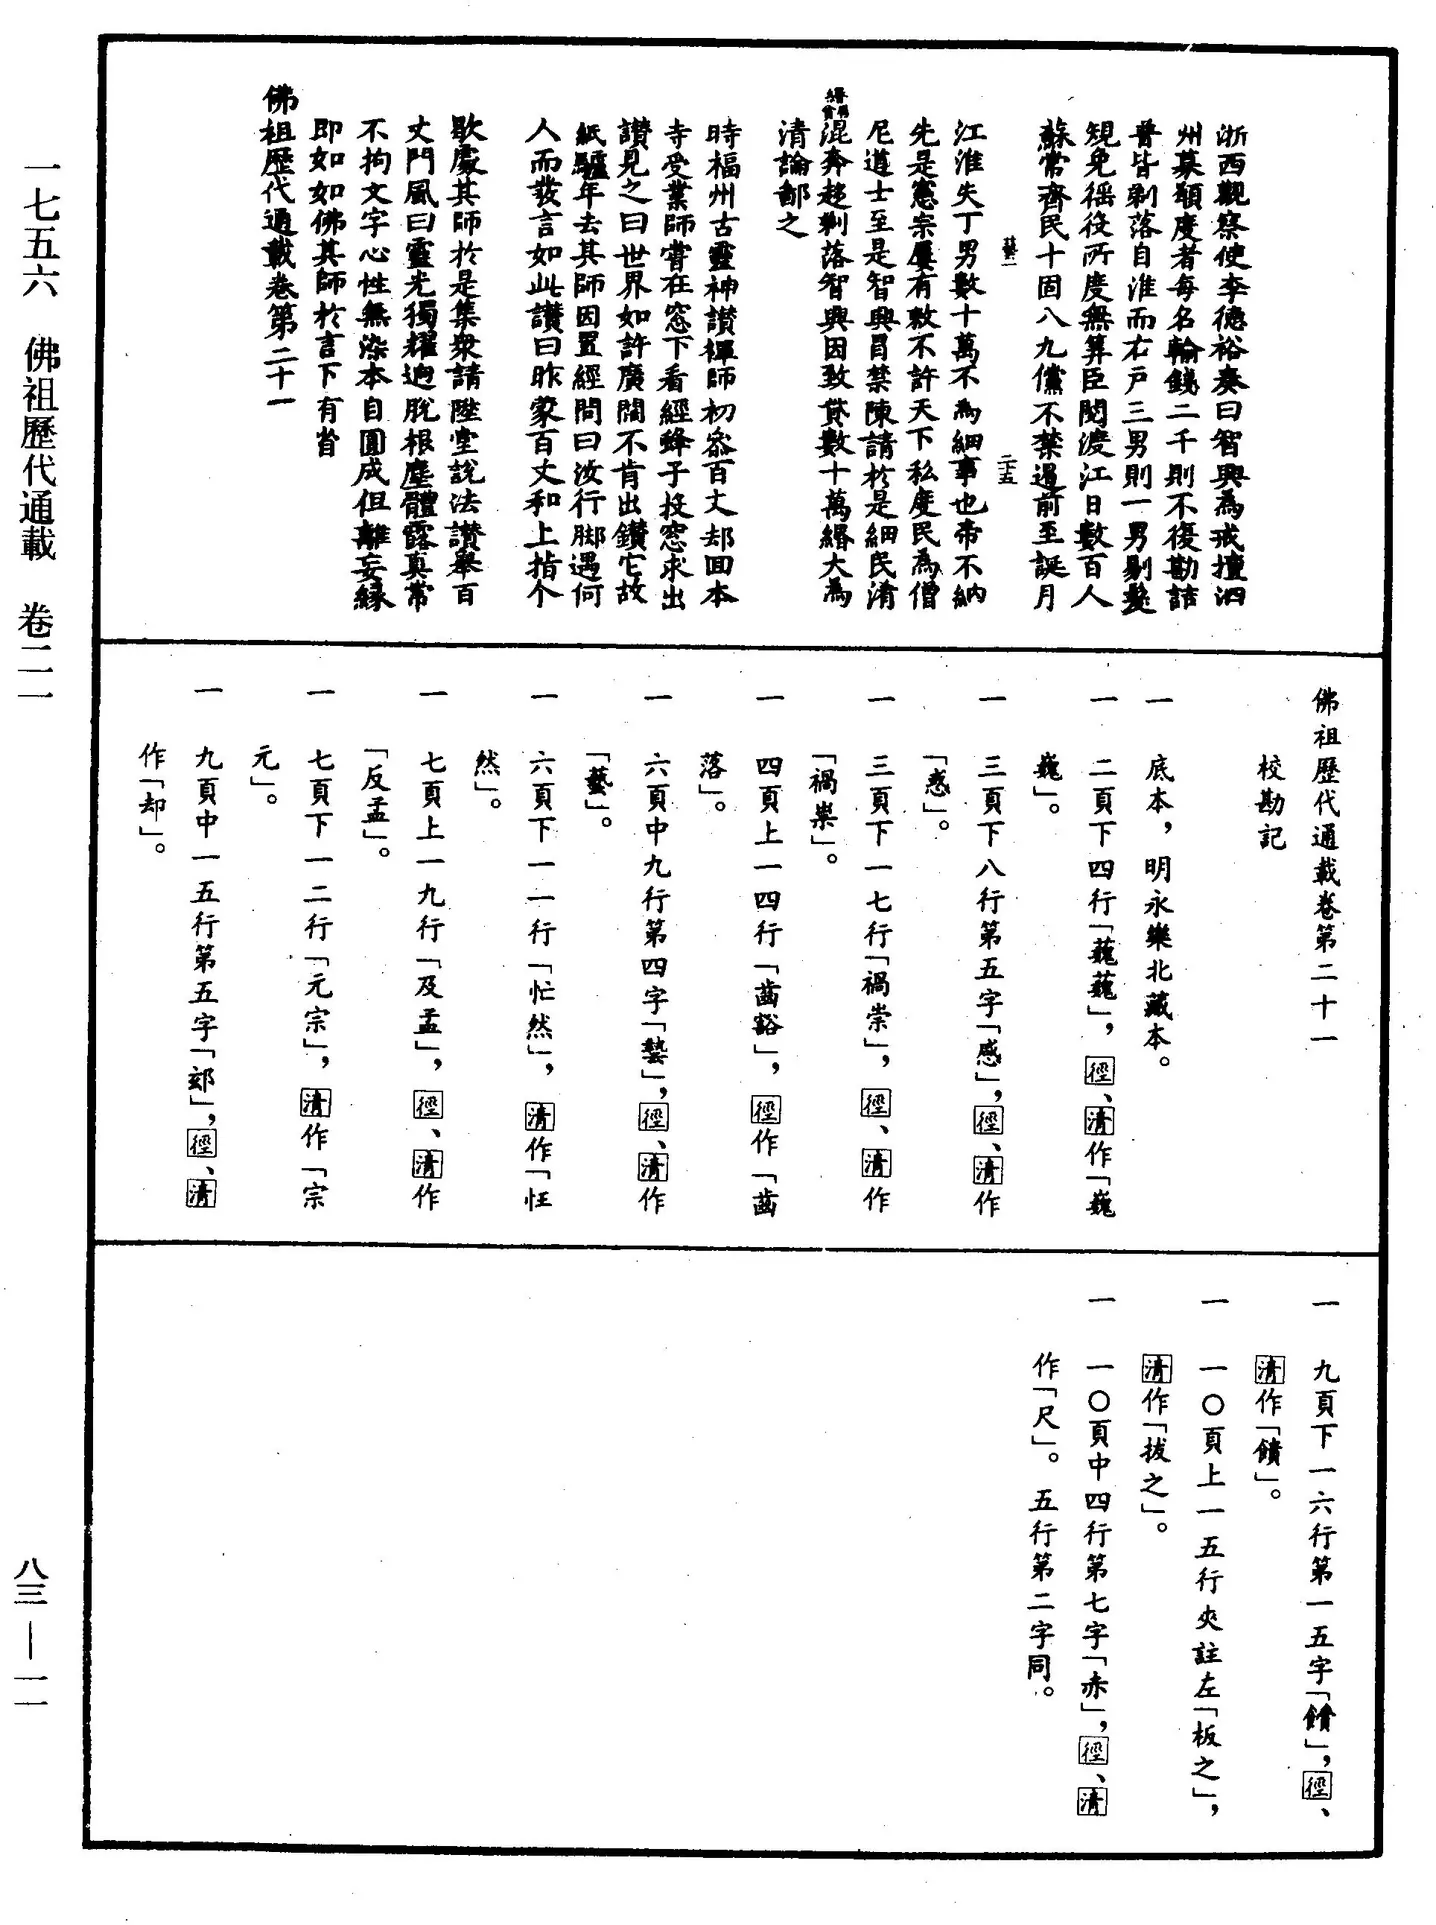 一七五六　佛祖歷代通載　卷二一
浙西觀察使李德裕奏曰智興為戒壇泗
州募願度者每名輸錢二千則不復勘詰
普皆剃落自淮而右户三男則一男剔髮
規免徭役所度無筭臣閲渡江日數百人
蘇常齊民十固八九儻不禁遏前至誕月
江淮失丁男數十萬不為細事也帝不納
先是憲宗屢有敕不許天下私度民為僧
尼道士至是智興冒禁陳請於是細民淆
混奔趍剃落智興因致貲數十萬緡大為
清論鄙之
時福州古靈神讃禪師初叅百丈却回本
寺受業師嘗在窓下看經蜂子投窓求出
讃見之曰世界如許廣闊不肯出鑽它故
紙驢年去其師因置經問曰汝行脚遇何
人而發言如此讃曰昨蒙百丈和上指个
歇處其師於是集衆請陞堂說法讃舉百
丈門風曰靈光獨耀逈脫根塵體露真常
不拘文字心性無染本自圓成但離妄緣
即如如佛其師於言下有省
佛祖歷代通載卷第二十一
佛祖歷代通載卷第二十一
校勘記
一　底本，明永樂北藏本。
一　二頁下四行「巍巍」，徑、清作「巍
巍」。
一　三頁下八行第五字「感」，徑、清作
「惑」。
一　三頁下一七行「禍崇」，徑、清作
「禍祟」。
一　四頁上一四行「齒豁」，徑作「齒
落」。
一　六頁中九行第四字「褺」，徑、清作
「藝」。
一　六頁下一一行「忙然」，清作「恇
然」。
一　七頁上一九行「及孟」，徑、清作
「反孟」。
一　七頁下一二行「元宗」，清作「宗
元」。
一　九頁中一五行第五字「郊」，徑、清
作「却」。
一　九頁下一六行第一五字「饋」，徑、
清作「饋」。
一　一〇頁上一五行夾註左「板之」，
清作「拔之」。
一　一〇頁中四行第七字「赤」，徑、清
作「尺」。五行第二字同。
八三—一一